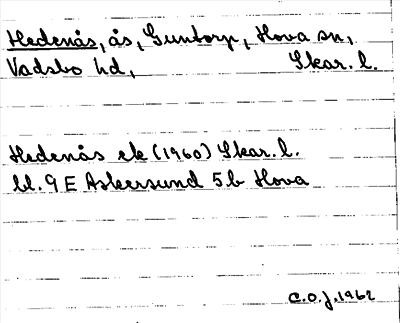 Hedenås, ås, Guntorp, Hova sn,
Vadsbo hd, Skar. l.
Hedenås ek (1960) Skar. l.
bl. 9 E Askersund 5b Hova
C.O.J. 1962